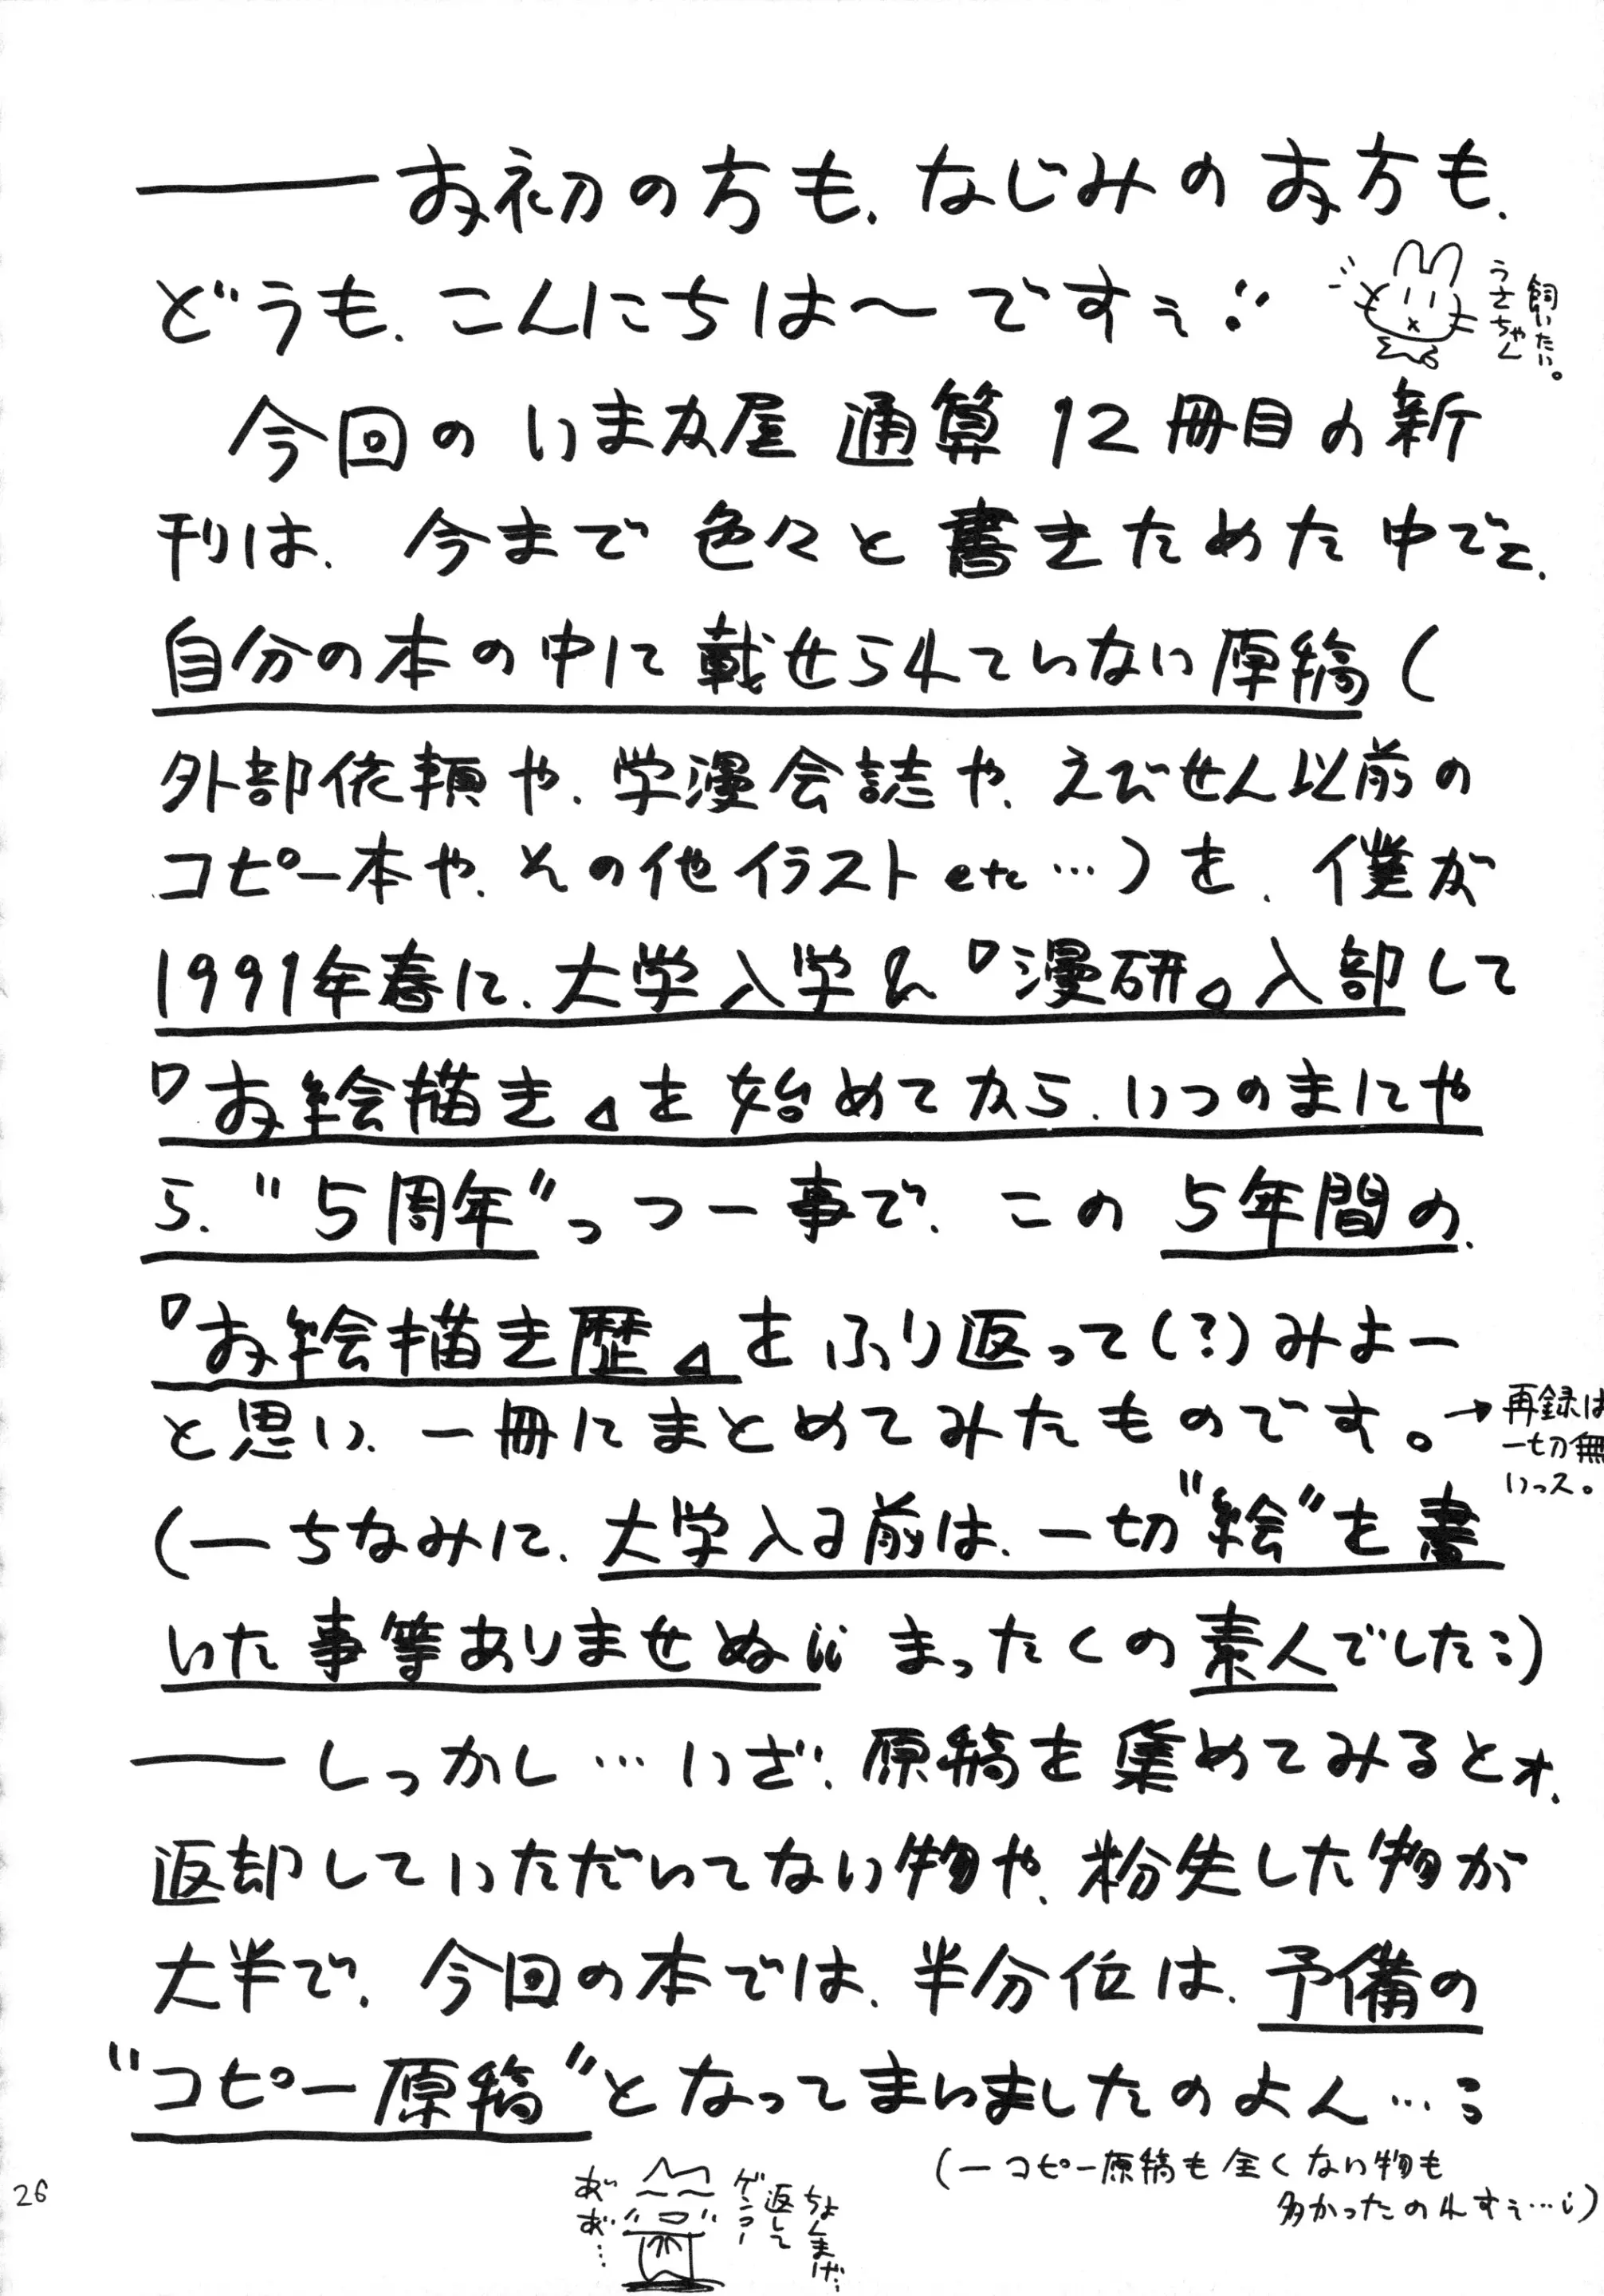 ──お初の方も、なじみのお方も、
どうも、こんにちは〜ですぇ
うさちゃん
飼いたい。
今回のいまか屋 通算12冊目の新
刊は、今まで色々と書きためた中でェ、
自分の本の中に載せられていない原稿(
外部依頼や、学漫会誌や、えびせん以前の
コピー本や、その他イラストetc…)を、僕が
1991年春に、大学入学&『漫研』入部して
『お絵描き』を始めてから、いつのまにや
ら、"5周年"っつー事で、この5年間の、
『お絵描き歴』をふり返って(?)みよー
と思い、一冊にまとめてみたものです。
→再録は
一切無
いっス。
(─ちなみに、大学入る前は、一切"絵"を書
いた事等ありませぬii まったくの素人でした)
──しっかし…いざ、原稿を集めてみるとォ、
返却していただいてない物や、粉失した物が
大半で、今回の本では、半分位は、予備の
"コピー原稿"となってまいましたのよん…
(─コピー原稿も全くない物も
多かったのれすぇ…i)
ちょんまげ
返して
ゲンコー
あ゛あ゛…
26